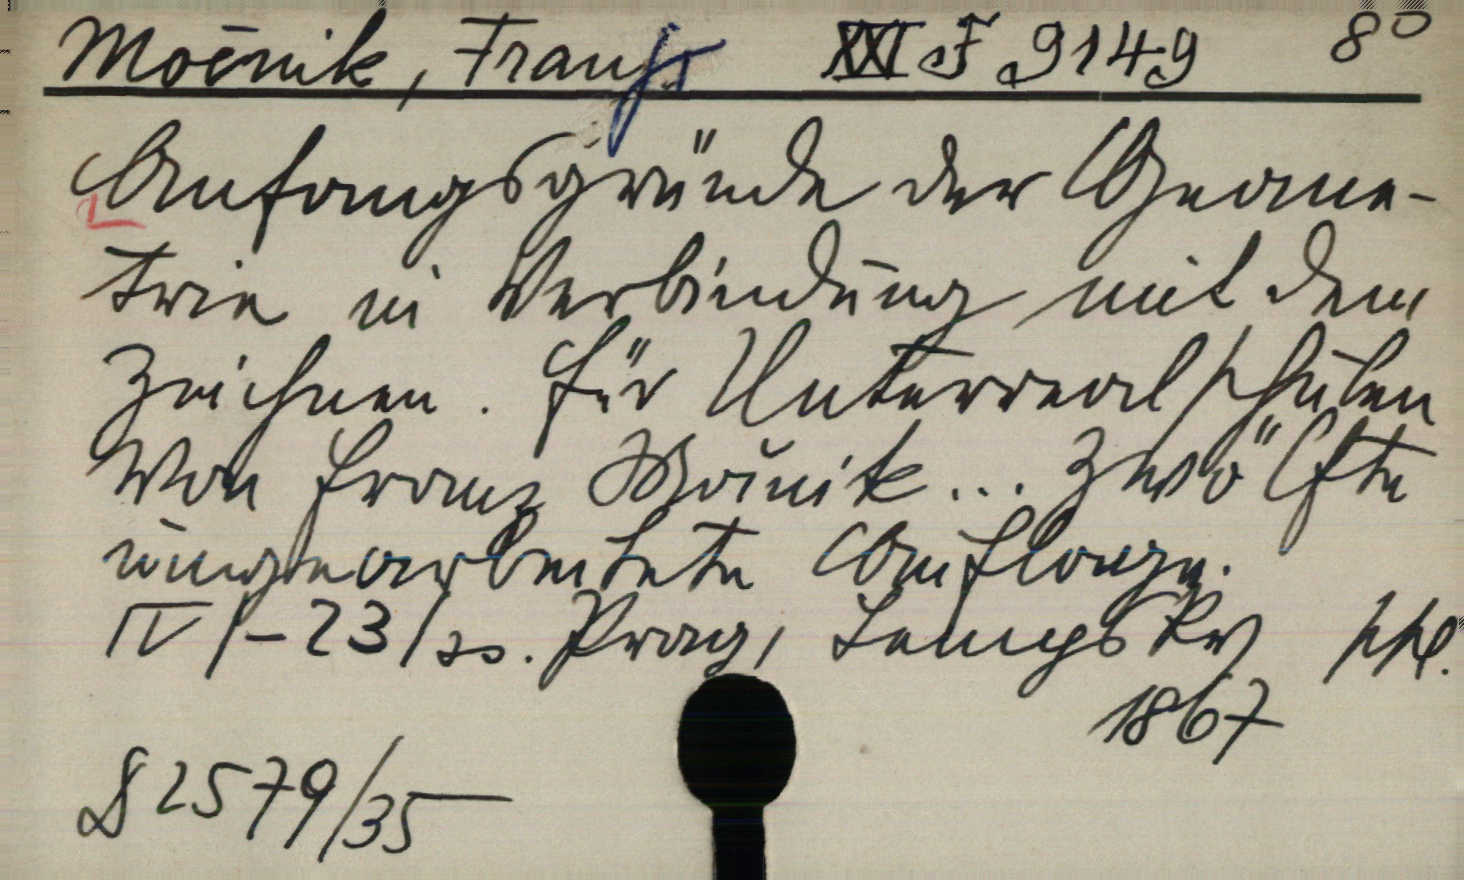 Močnik, Franz XXI F 9149 8°
Anfangsgründe der Geome-
trie in Verbindung mit dem
Zeichnen. Für Unterrealschulen
Von Franz Močnik... Zwölfte
umgearbeitete Auflage.
IV/-23/20. Prag, Tempsky
1867
2579/35